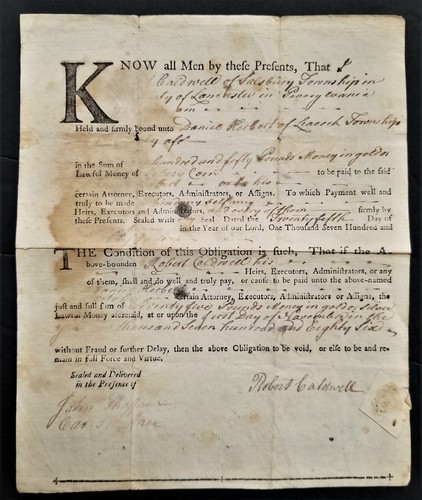 KNOW all Men by theſe Preſents, That I
Caldwell of Salsbury Township in
ty of Lancaster in Pennsylvania
am
Held and firmly bound unto Daniel Herbert of Leacock Township
in the Sum of hundred and fifty Pounds Money in gold or
Lawful Money of Silver Coin to be paid to the ſaid
or to his
certain Attorney, Executors, Adminiſtrators, or Aſſigns. To which Payment well and
truly to be made I bind my self my
Heirs, Executors and Adminiſtrators, and every of them firmly by
theſe Preſents. Sealed with my Seal Dated the Twenty fifth Day of
in the Year of our Lord, One Thouſand Seven Hundred and
THE Condition of this Obligation is ſuch, That if the A
bove-bounden Robert Caldwell his
Heirs, Executors, Adminiſtrators, or any
of them, ſhall and do well and truly pay, or cauſe to be paid unto the above-named
Herbert
Certain Attorney, Executors, Adminiſtrators or Aſſigns, the
juſt and full ſum of Seventy five Pounds Money in gold or Silver
Lawful Money aforeſaid, at or upon the first Day of November in the
thousand Seven hundred and Eighty Six
without Fraud or further Delay, then the above Obligation to be void, or elſe to be and re-
main in full Force and Virtue.
Sealed and Delivered
in the Preſence of
Robert Caldwell
John